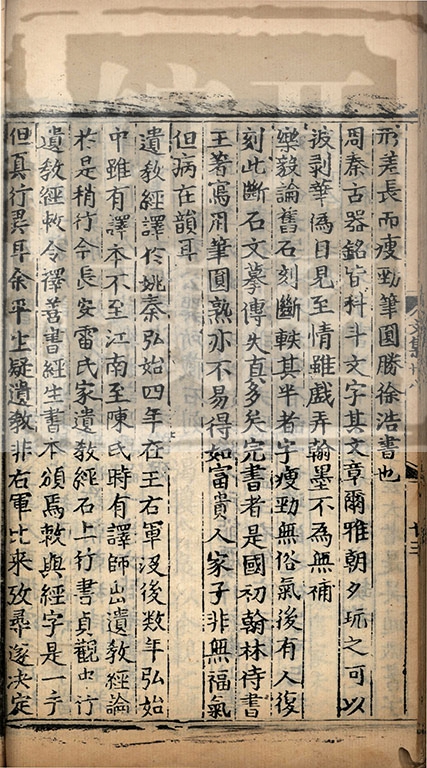 形差長而瘦勁筆圓勝徐浩書也
周秦古器銘皆科斗文字其文章爾雅朝夕玩之可以
披剥華偽自見至情雖戲弄翰墨不為無補
樂毅論舊石刻斷軼其半者字瘦勁無俗氣後有人復
刻此斷石文摹傳失真多矣完書者是國初翰林侍書
王著寫用筆圓熟亦不易得如富貴人家子非無福氣
但病在韻耳
遺敎經譯扵姚秦弘始四年在王右軍沒後数年弘始
中雖有譯本不至江南至陳氏時有譯師出遺敎經論
扵是稍行今長安雷氏家遺敎經石上行書貞觀中行
遺敎經敕令擇善書經生書本頒焉敕與經字是一手
但真行異耳余平生疑遺敎非右軍比來攷尋遂决定
文集廿八
十三